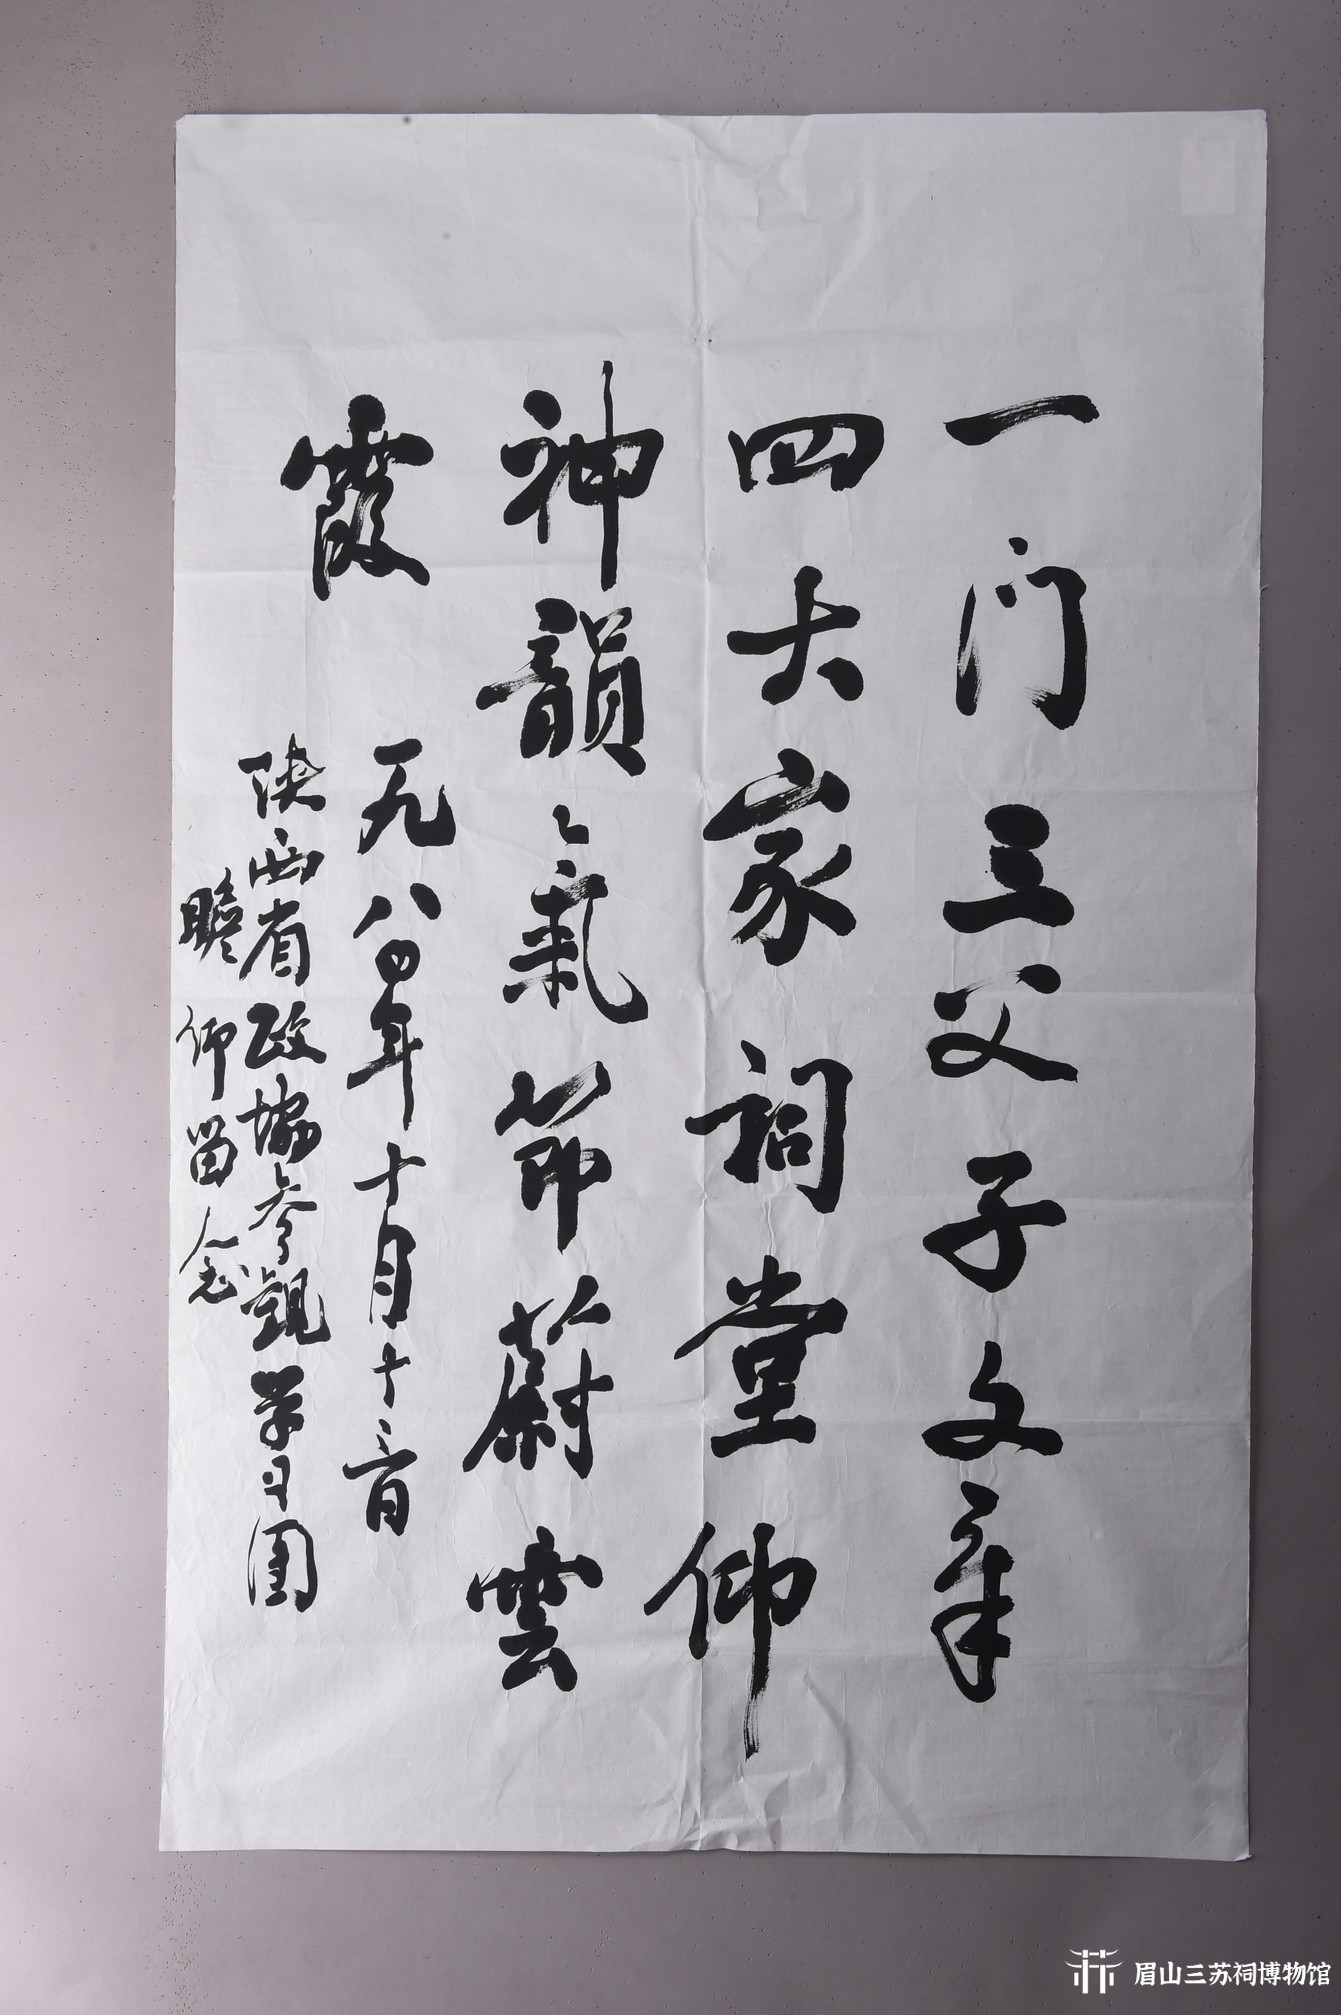 一门三父子文章
四大家祠堂仰
神韻氣節蔚雲
霞
一九八四年十月十二日
陕西省政协参觀学习团
瞻仰留念
眉山三苏祠博物馆